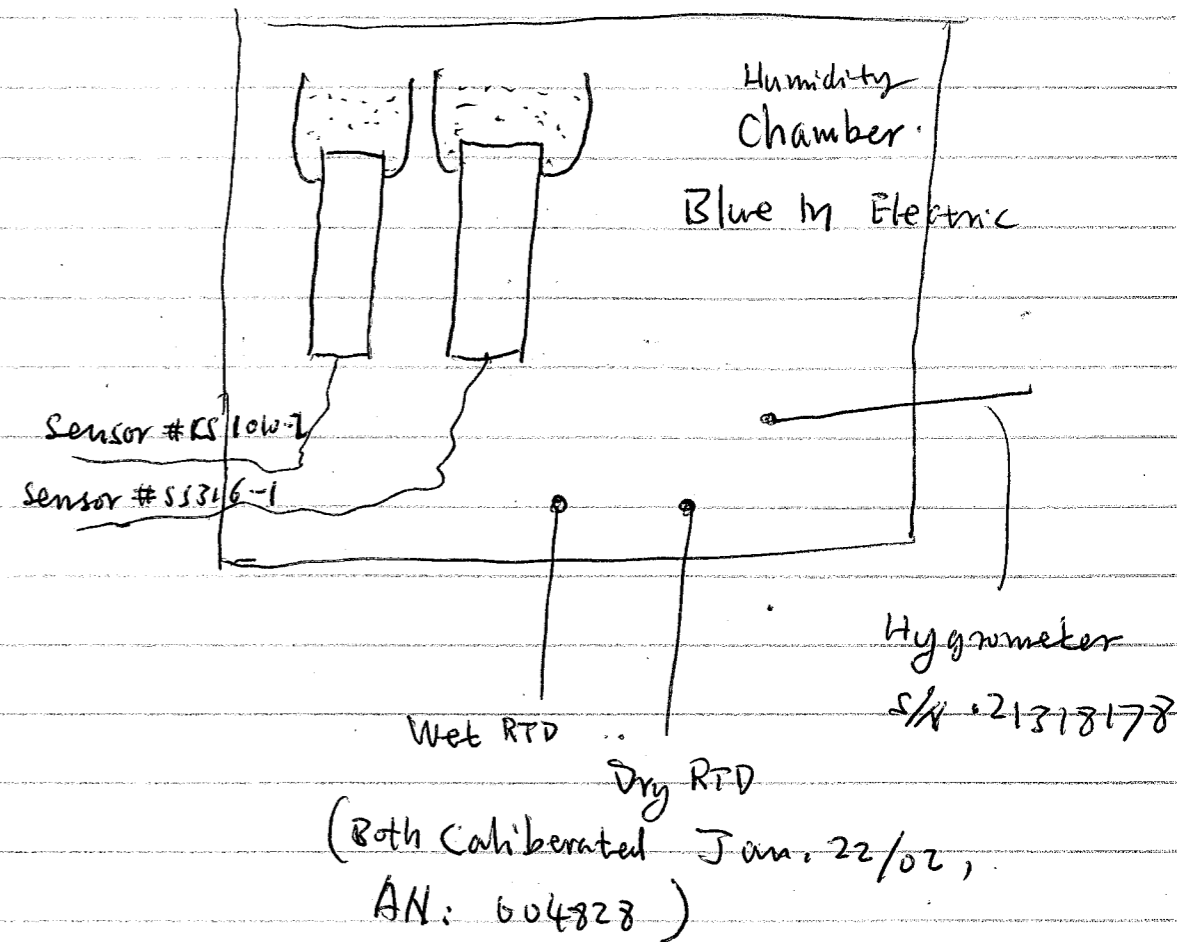 Humidity
Chamber.
Blue M Electric
Sensor #
Sensor # SS316-1
Hygrometer
S/N 21318178
Wet RTD
Dry RTD
(Both Caliberated Jan. 22/02,
AN: 004828)